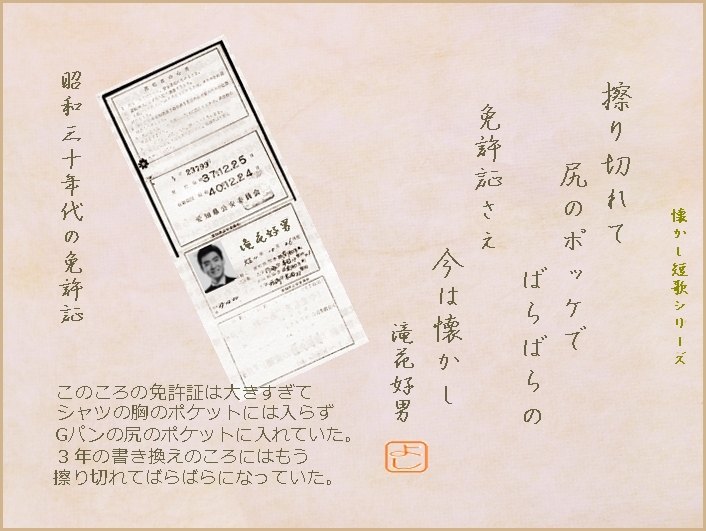 懐かし短歌シリーズ
擦り切れて
尻のポッケで
ばらばらの
免許証さえ
今は懐かし
滝花好男
よし
昭和三十年代の免許証
23793
37.12.25
40.12.24
愛知県公安委員会
滝花好男
このころの免許証は大きすぎて
シャツの胸のポケットには入らず
Gパンの尻のポケットに入れていた。
３年の書き換えのころにはもう
擦り切れてばらばらになっていた。